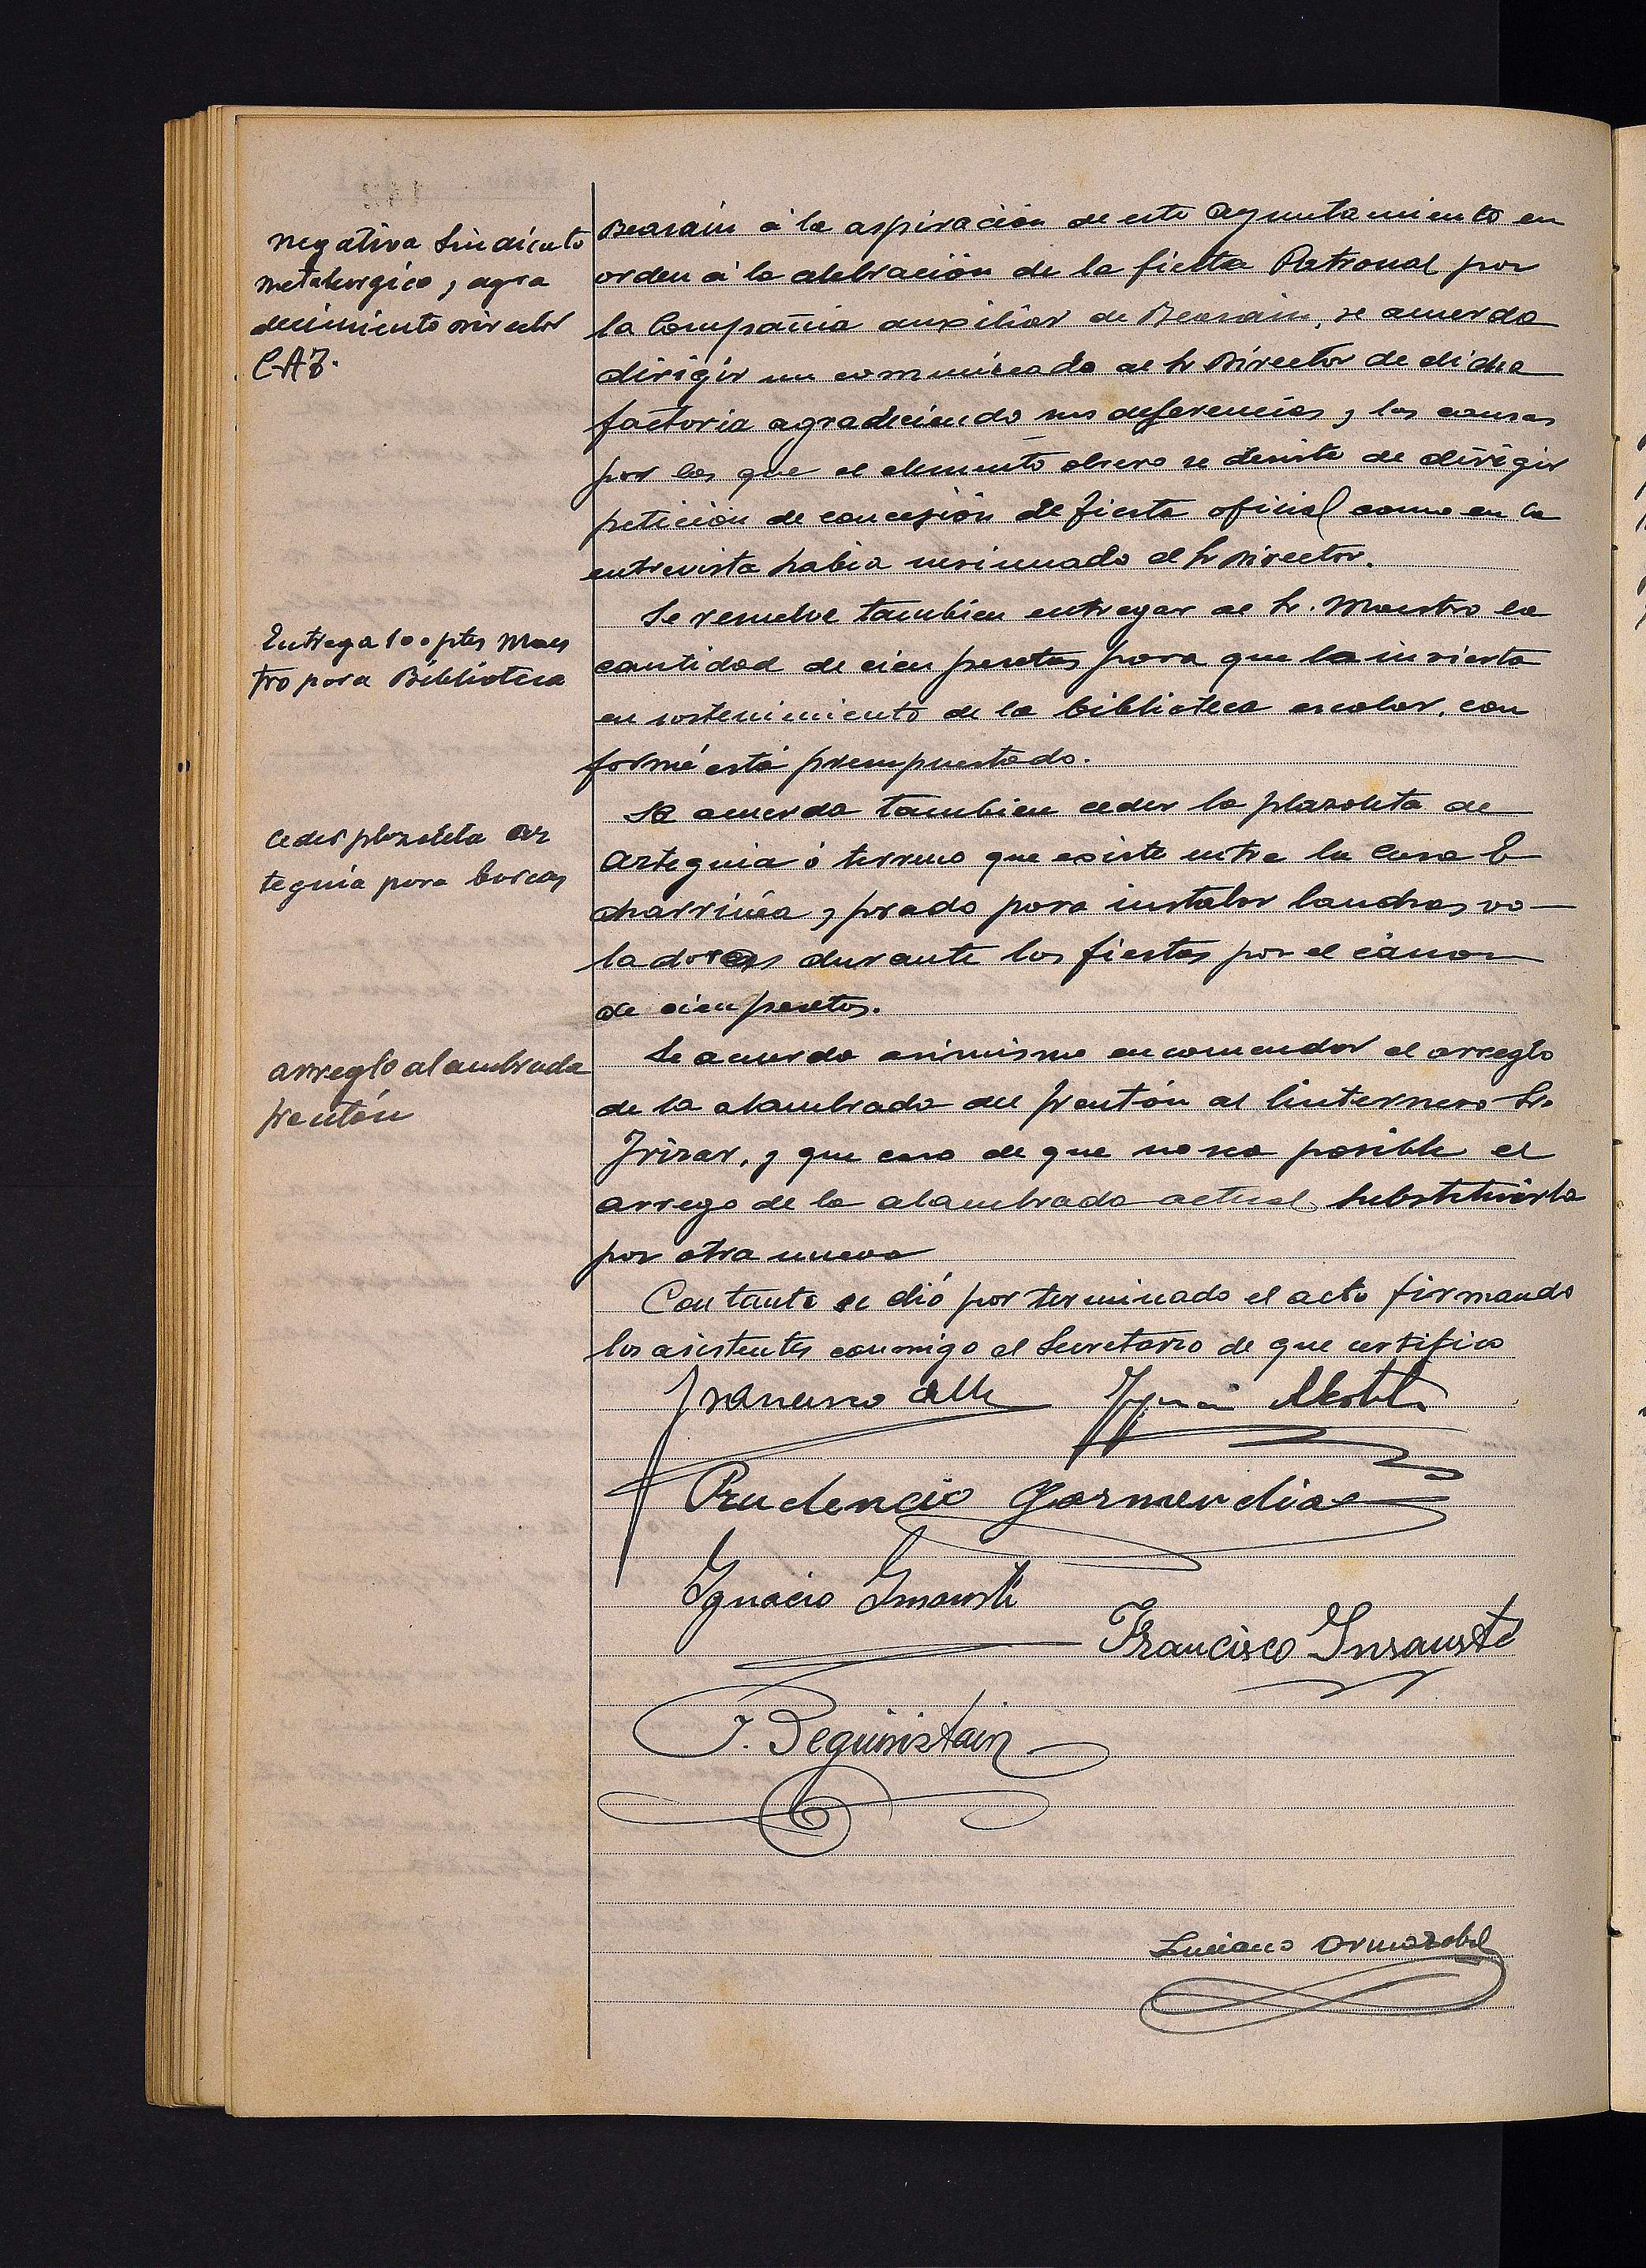 negativa Sindicato
metalurgico, y agra
decimiento Director
C.A.F.
Beasain á la aspiración de este Ayuntamiento en
orden á la celebración de la fiesta Patronal por
la Compañia auxiliar de Beasain, se acuerda
dirigir un comunicado al Sr Director de dicha
factoria agradeciendo sus deferencias y las causas
por las que el elemento obrero se desiste de dirigir
petición de concesión de fiesta oficial como en la
entrevista habia insinuado el Sr Director.
Entrega 100 ptas Maes
tro para Biblioteca
Se resuelve tambien entregar al Sr. Maestro la
cantidad de cien pesetas para que la invierta
en sostenimiento de la biblioteca escolar, con
forme está presupuestado.
ceder plazoleta Ar
teguia para barcas
Se acuerda tambien ceder la plazoleta de
Arteguia ó terreno que existe entre la Casa E
charrinea y prado para instalar lanchas vo-
ladoras durante las fiestas por el cánon
de cien pesetas.
arreglo alambrada
frontón
Se acuerda asimismo encomendar el arreglo
de la alambrada del frontón al linternero Sr.
Irizar, y que caso de que no sea posible el
arrego de la alambrada actual substituirla
por otra nueva
Con tanto se dió por terminado el acto firmando
los asistentes conmigo el Secretario de que certifico
Prudencio Garmendia
Ignacio Insausti
Francisco Insausti
J. Beguiristain
Luciano Ormazabal